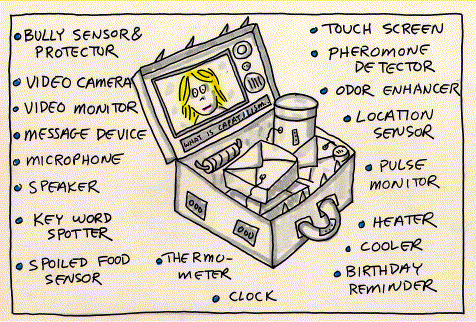 BULLY SENSOR &
PROTECTOR
VIDEO CAMERA
VIDEO MONITOR
MESSAGE DEVICE
MICROPHONE
SPEAKER
KEY WORD
SPOTTER
SPOILED FOOD
SENSOR
THERMO-
METER
CLOCK
WHAT IS CAPATILISM
TOUCH SCREEN
PHEROMONE
DETECTOR
ODOR ENHANCER
LOCATION
SENSOR
PULSE
MONITOR
HEATER
COOLER
BIRTHDAY
REMINDER